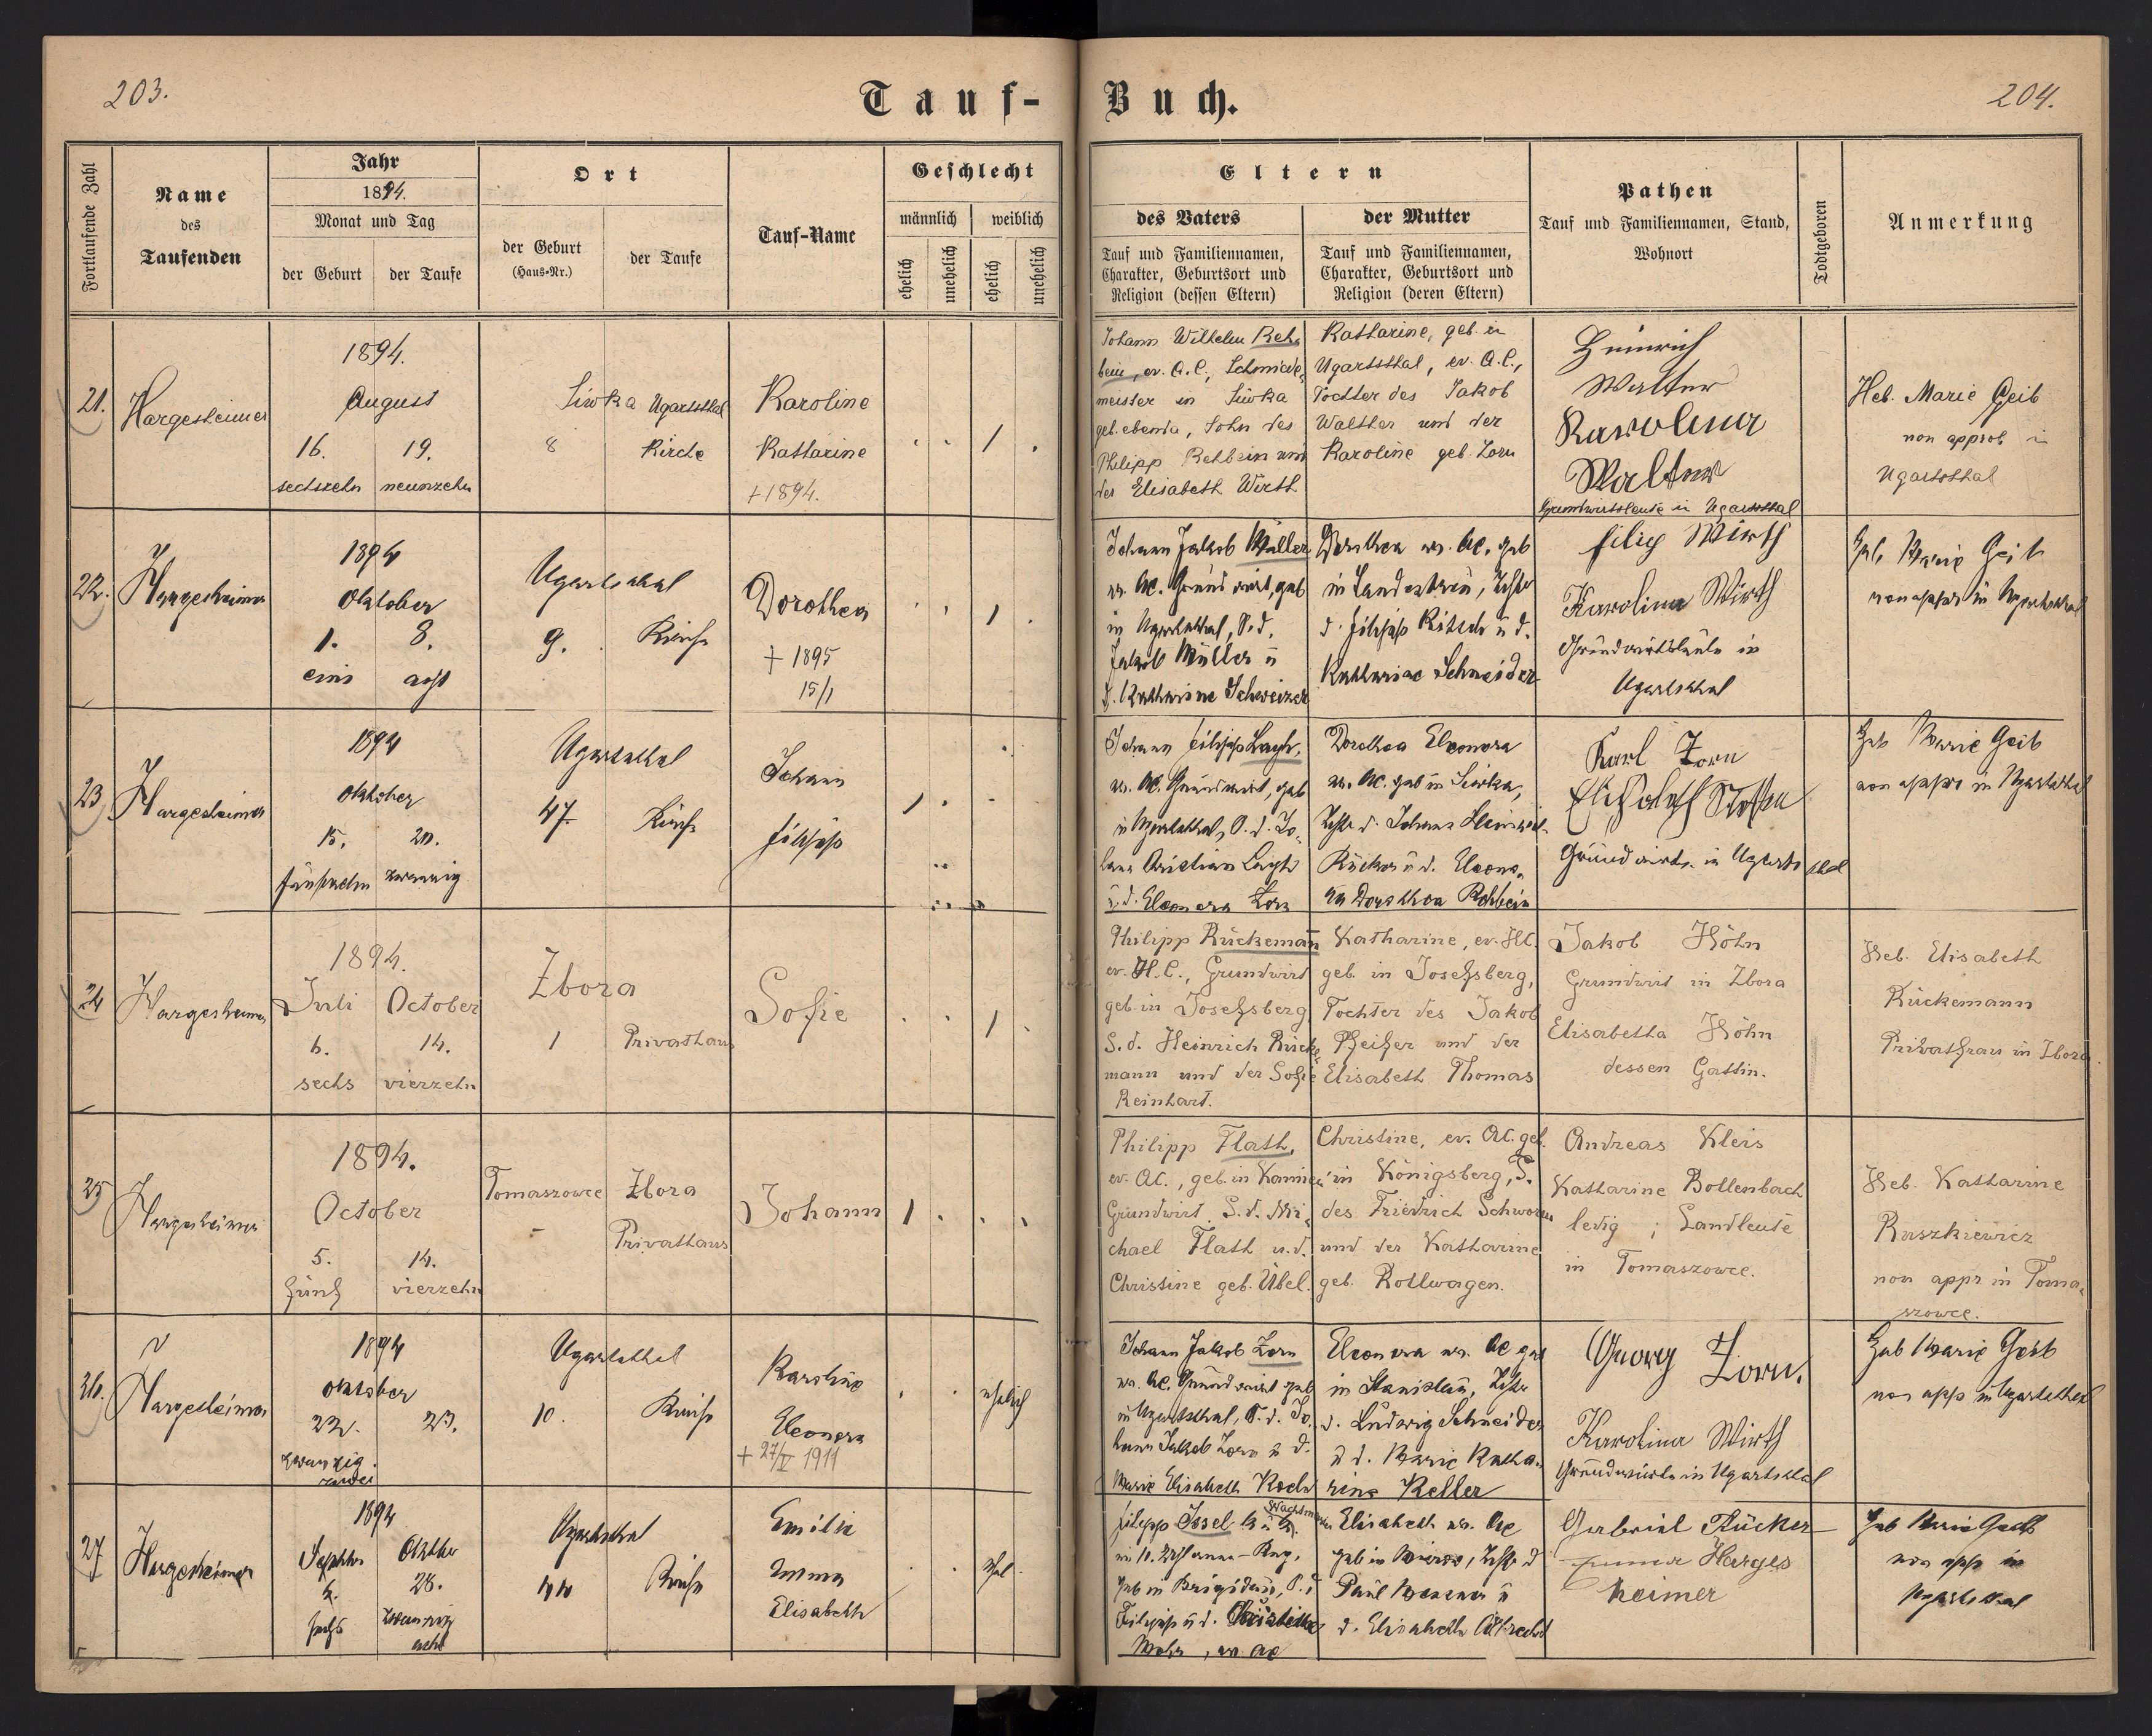 203.
Tauf-
Buch.
204.
Fortlaufende Zahl
Name
des
Taufenden
Jahr
1894.
Monat und Tag
der Geburt
der Taufe
Ort
der Geburt
(Haus-Nr.)
der Taufe
Tauf-Name
Geschlecht
männlich
weiblich
ehelich
unehelich
ehelich
unehelich
Eltern
des Vaters
Tauf und Familiennamen,
Charakter, Geburtsort und
Religion (dessen Eltern)
der Mutter
Tauf und Familiennamen,
Charakter, Geburtsort und
Religion (deren Eltern)
Pathen
Tauf und Familiennamen, Stand,
Wohnort
Todtgeboren
Anmerkung
21.
Hargesheimer
1894.
August
16.
19.
sechszehn
neunzehn
Siwka
8
Ugartsthal
Kirche
Karoline
Katharine
+ 1894.
1
Johann Wilhelm Reh-
bein, ev. A.C., Schmiede-
meister in Siwka
geb. ebenda, Sohn des
Philipp Rehbein und
der Elisabeth Wirth
Katharine, geb. in
Ugartsthal, ev. A.C.,
Tochter des Jakob
Walther und der
Karoline geb. Zorn
Heinrich
Walter
Karolina
Walter
Grundwirtsleute in Ugartsthal
Heb. Marie Geib
non approb in
Ugartsthal
22.
Hargesheimer
1894
Oktober
1.
8.
eins
acht
Ugartsthal
9.
Kirche
Dorothea
+ 1895
15/1
1
Johann Jakob Müller
ev. AC. Grundwirt, geb
in Ugartsthal, S. d.
Jakob Müller u
d. Katharine Schweizer
Dorothea ev. AC. geb
in Landestreu, Tchtr
d. Filipp Ritsch u d.
Katharine Schneider
Filip Wirth
Karolina Wirth
Grundwirtsleute in
Ugartsthal
Heb Marie Geib
non appr in Ugartsthal
23
Hargesheimer
1894
Oktober
15.
20.
fünfzehn
zwanzig
Ugartsthal
47
Kirche
Johann
Filipp
1
Johann Filipp
ev. AC. Grundwirt, geb
in Ugartsthal, S. d. Jo-
hann Christian
u. d. Eleonora Zorn
Dorothea Eleonora
ev. AC. geb in Siwka,
Tchtr d. Johann Heinrich
Rücker u d. Eleono-
ra Dorothea Rehbein
Karl Zorn
Grundwirte in Ugartsthal
Heb Marie Geib
non appr in Ugartsthal
24
Hargesheimer
1894.
Juli
October
6.
14.
sechs
vierzehn
Zbora
1
Privathaus
Sofie
1
Philipp Rückemann
ev. H.C., Grundwirt
geb. in Josefsberg
S. d. Heinrich Rücke-
mann und der Sofie
Reinhart.
Katharine, ev. H.C.
geb. in Josefsberg,
Tochter des Jakob
Pfeifer und der
Elisabeth Thomas
Jakob Höhn
Grundwirt in Zbora
Elisabetha Höhn
dessen Gattin.
Heb. Elisabeth
Rückemann
Privatfrau in Zbora.
25
Hargesheimer
1894.
October
5.
14.
fünf
vierzehn
Tomaszowce
-
Zbora
Privathaus
Johann
1
Philipp Flath,
ev. AC., geb. in
Grundwirt S. d. Mi-
chael Flath u. d.
Christine geb. Übel.
Christine, ev. AC. geb.
in Königsberg, T.
des Friedrich Schworm
und der Katharine
geb. Rollwagen.
Andreas Kleis
Katharine Bollenbach
ledig ; Landleute
in Tomaszowce.
Heb. Katharine
Ruszkiewicz
non appr in Toma-
szowce.
26.
Hargesheimer
1894
Oktober
22.
23.
zwanzig
zwei
Ugartsthal
10.
Kirche
Karoline
Eleonora
+ 27/V 1911
ehelich
Johann Jakob Zorn
ev. AC. Grundwirt geb
in Ugartsthal, S. d. Jo-
hann Jakob Zorn u d.
Marie Elisabeth Koch
Eleonora ev. AC geb
in Stanislau, Tchtr
d. Ludwig Schneider
u d. Marie Katha-
rina Keller
Georg Zorn.
Karolina Wirth
Grundwirte in Ugartsthal
Heb Marie Geib
non app in Ugartsthal
27
Hargesheimer
1894
Septbr
Oktober
6.
28.
sechs
zwanzig
acht
Ugartsthal
44
Kirche
Emilie
Emma
Elisabeth
ehel
Filipp Issel
Wachtmeister
geb in Brigidau, S. d
Filipp u d.
Mohr, ev. AC
Elisabeth ev. AC
Paul
d. Elisabeth Albrecht
Gabriel Rücker
Emma Harges
heimer
Heb Marie Geib
non app in
Ugartsthal